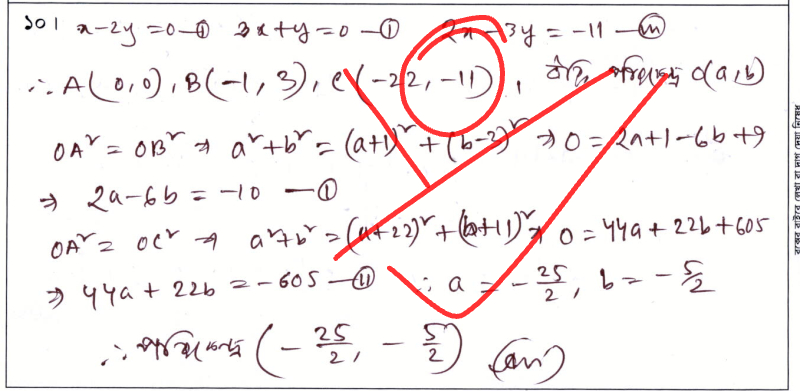 ১০। x-2y=0—① 3x+y=0—① 2x-3y=-11—⑪
∴ A(0,0), B(-1,3), C(-22,-11), ধরি পরিকেন্দ্র O(a,b)
OA² = OB² ⇒ a²+b² = (a+1)²+(b-3)² ⇒ 0=2a+1-6b+9
⇒ 2a-6b = -10 —①
OA² = OC² ⇒ a²+b² = (a+22)²+(b+11)² ⇒ 0=44a+22b+605
⇒ 44a+22b = -605—⑪ ∴ a = -25/2, b = -5/2
∴ পরিকেন্দ্র (-25/2, -5/2) (An)